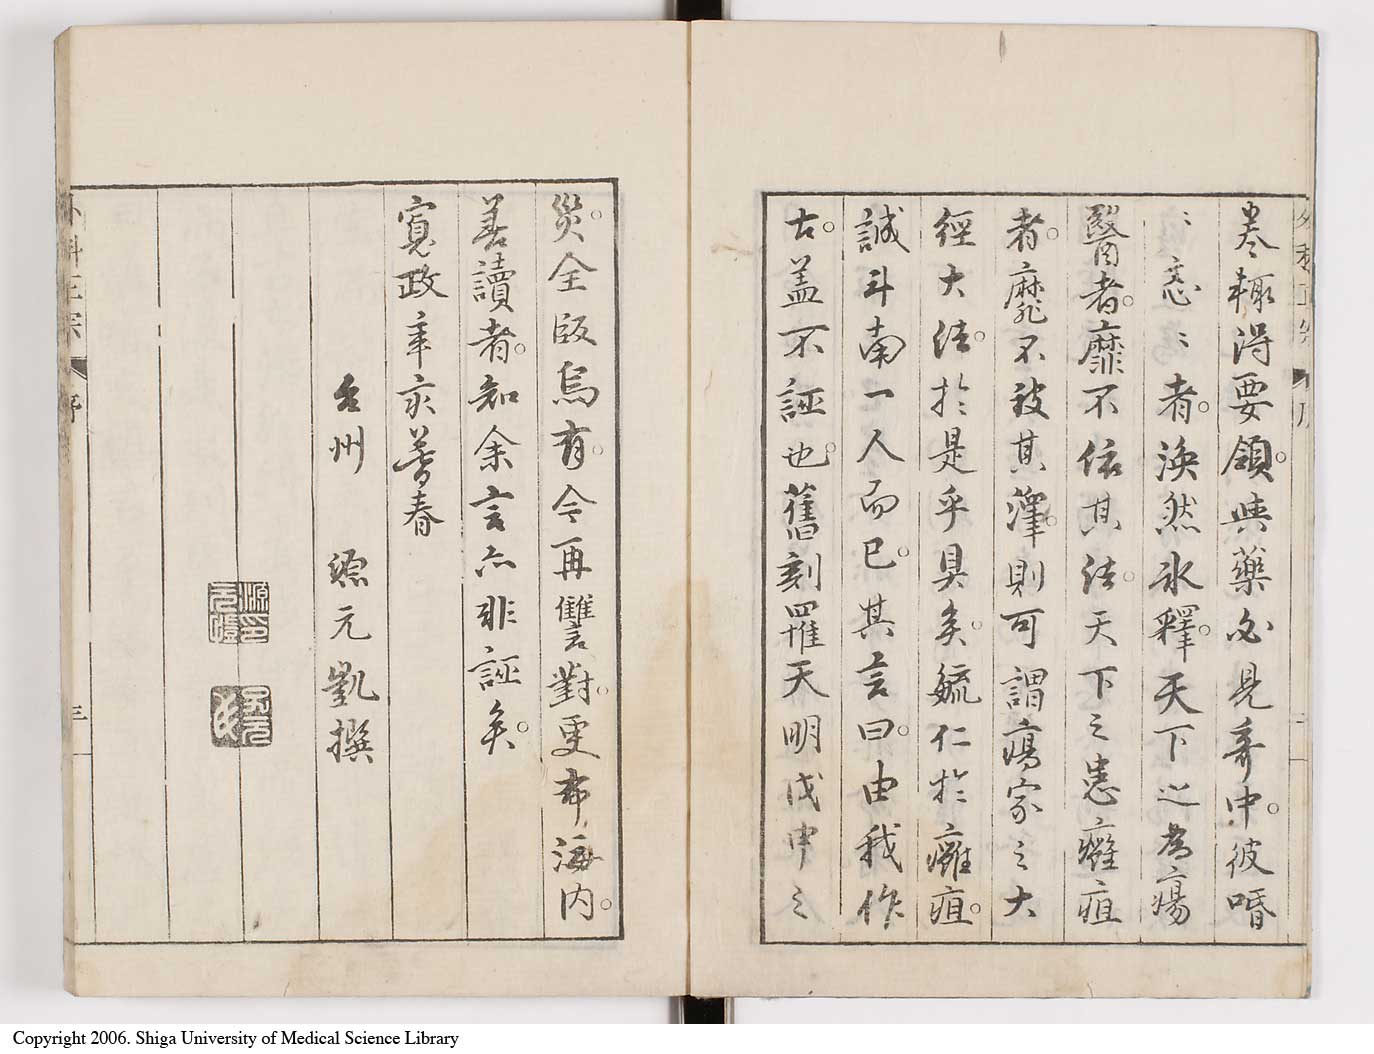 卷輙得要領與藥必見弃中彼惛
〻忞〻者渙然氷釋天下之為瘍
醫者靡不依其法天下之患癰疽
者靡不被其澤則可謂瘍家之大
經大法於是乎具矣毓仁於癰疽
誠斗南一人而已其言曰由我作
古盖不誣也舊刻罹天明戊申之
災全版烏有今再讐對更布海内
善讀者知余言亦非誣矣
寛政辛亥暮春
台州 源元凱撰
外科正宗 序 三
Copyright 2006. Shiga University of Medical Science Library